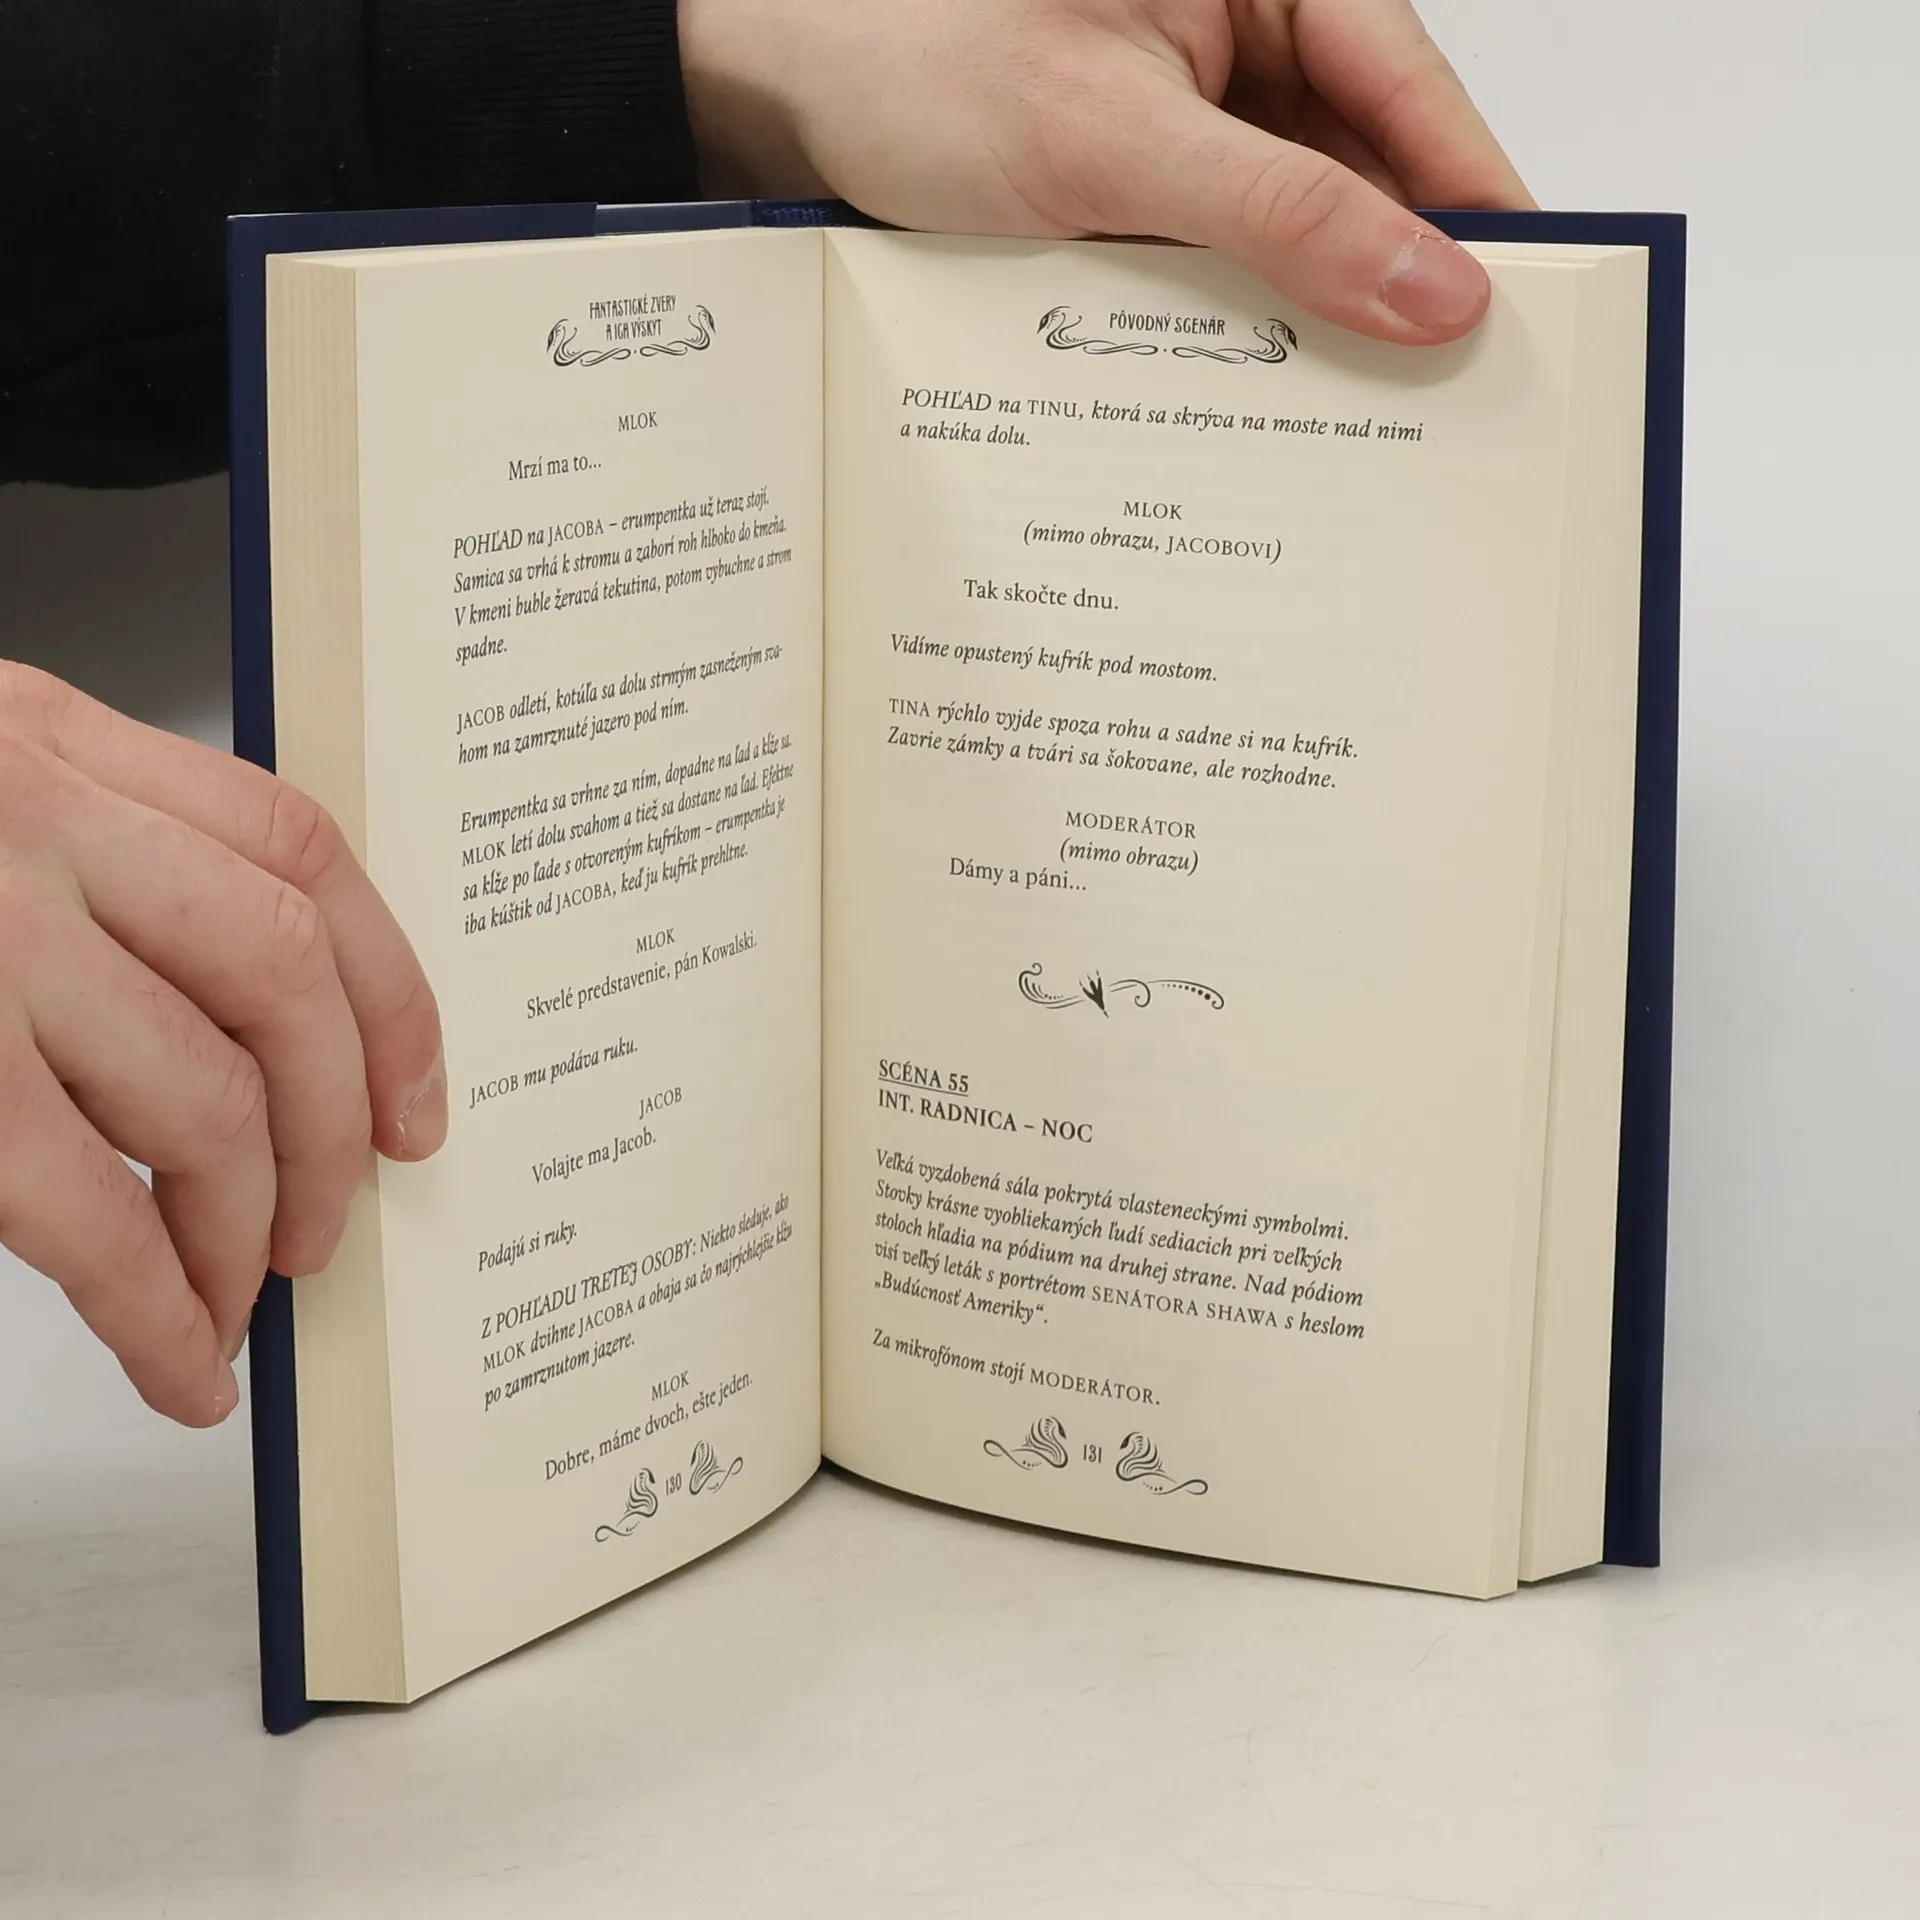 FANTASTICKÉ ZVERY
A ICH VÝSKYT
MLOK
Mrzí ma to...
POHĽAD na JACOBA – erumpentka už teraz stojí.
Samica sa vrhá k stromu a zaborí roh hlboko do kmeňa.
V kmeni buble žeravá tekutina, potom vybuchne a strom
spadne.
JACOB odletí, kotúľa sa dolu strmým zasneženým sva-
hom na zamrznuté jazero pod ním.
Erumpentka sa vrhne za ním, dopadne na ľad a kĺže sa.
MLOK letí dolu svahom a tiež sa dostane na ľad. Efektne
sa kĺže po ľade s otvoreným kufríkom – erumpentka je
iba kúštik od JACOBA, keď ju kufrík prehltne.
MLOK
Skvelé predstavenie, pán Kowalski.
JACOB mu podáva ruku.
JACOB
Volajte ma Jacob.
Podajú si ruky.
Z POHĽADU TRETEJ OSOBY: Niekto sleduje, ako
MLOK dvihne JACOBA a obaja sa čo najrýchlejšie kĺžu
po zamrznutom jazere.
MLOK
Dobre, máme dvoch, ešte jeden.
130
PÔVODNÝ SCENÁR
POHĽAD na TINU, ktorá sa skrýva na moste nad nimi
a nakúka dolu.
MLOK
(mimo obrazu, JACOBOVI)
Tak skočte dnu.
Vidíme opustený kufrík pod mostom.
TINA rýchlo vyjde spoza rohu a sadne si na kufrík.
Zavrie zámky a tvári sa šokovane, ale rozhodne.
MODERÁTOR
(mimo obrazu)
Dámy a páni...
SCÉNA 55
INT. RADNICA – NOC
Veľká vyzdobená sála pokrytá vlasteneckými symbolmi.
Stovky krásne vyobliekaných ľudí sediacich pri veľkých
stoloch hľadia na pódium na druhej strane. Nad pódiom
visí veľký leták s portrétom SENÁTORA SHAWA s heslom
„Budúcnosť Ameriky“.
Za mikrofónom stojí MODERÁTOR.
131